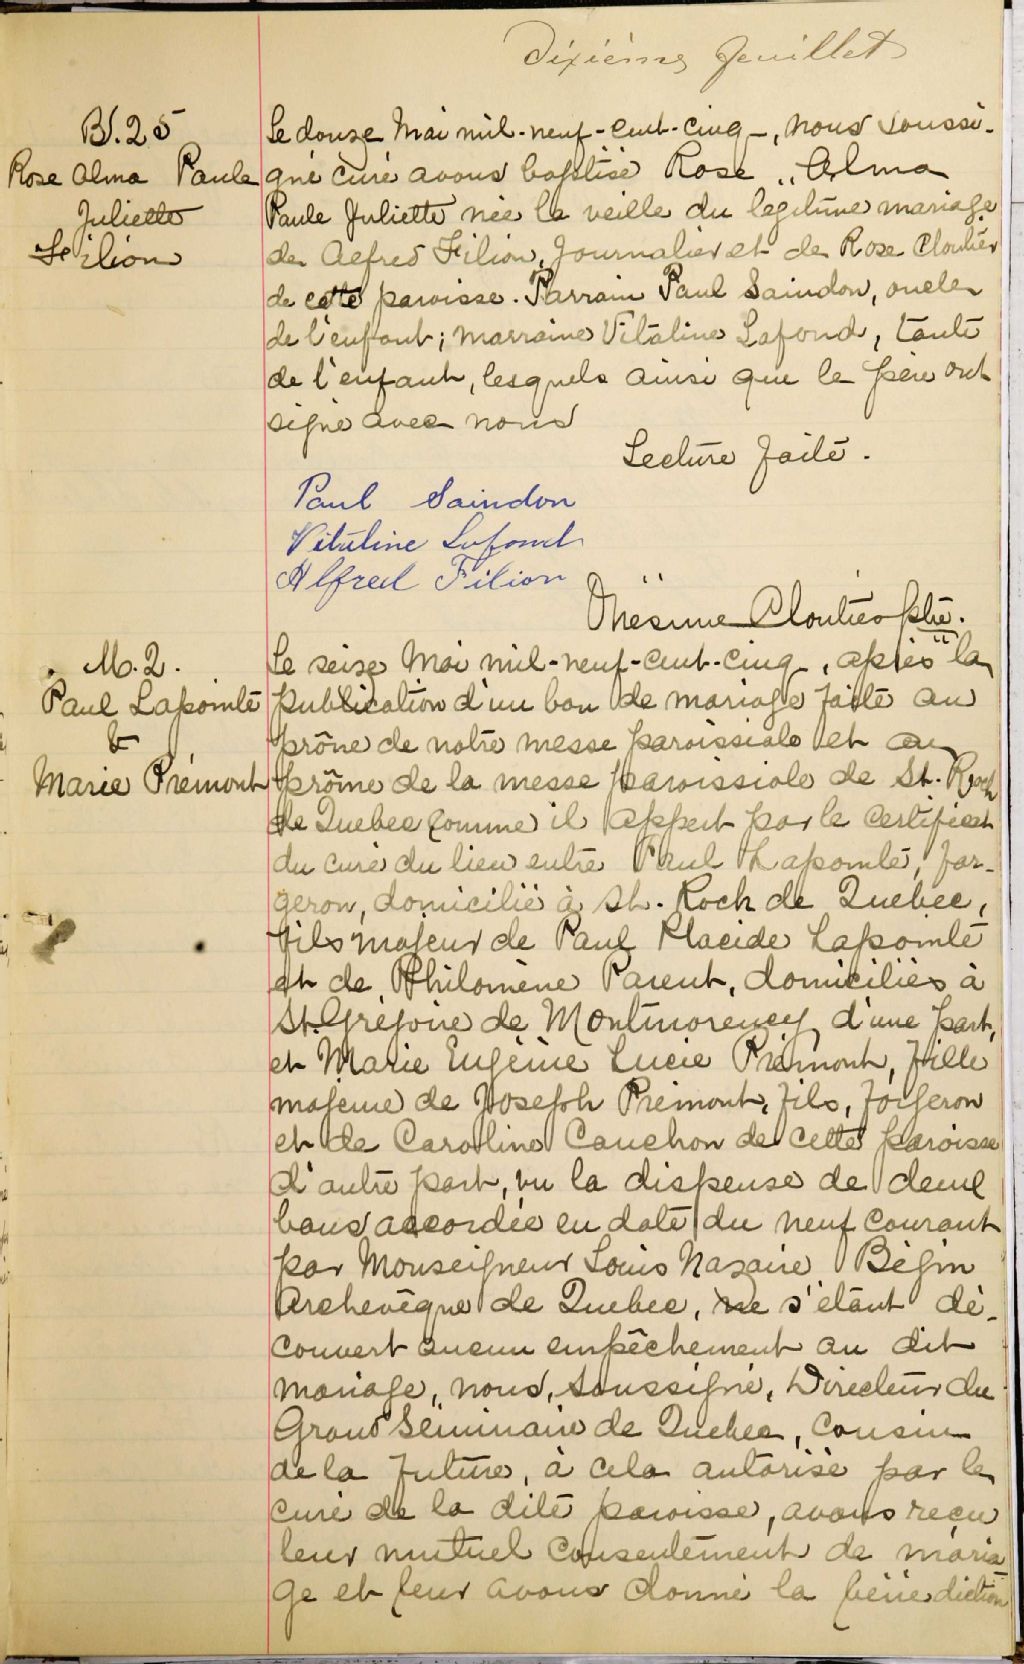 Dixième feuillet
B. 25
Rose Alma Paule
Juliette
Filion
Le douze Mai mil-neuf-cent-cinq, nous soussi-
gné curé avons baptisé Rose Alma
Paule Juliette née la veille du légitime mariage
de Alfred Filion, Journalier et de Rose Cloutier
de cette paroisse. Parrain Paul Saindon, oncle
de l'enfant; marraine Vitaline Lafond, tante
de l'enfant, lesquels ainsi que le père ont
signé avec nous
Lecture faite.
Paul Saindon
Vitaline Lafond
Alfred Filion
Onésime Cloutier ptre.
M. 2.
Paul Lapointe
&
Marie Prémont
Le seize Mai mil-neuf-cent-cinq, après la
publication d'un ban de mariage faite au
prône de notre messe paroissiale et au
prône de la messe paroissiale de St. Roch
de Québec comme il appert par le certificat
du curé du lieu entre Paul Lapointe, for-
geron, domicilié à St. Roch de Québec,
fils majeur de Paul Placide Lapointe
et de Philomène Parent, domiciliés à
St. Grégoire de Montmorency, d'une part,
et Marie Eugénie Lucie Prémont, fille
majeure de Joseph Prémont, fils, forgeron
et de Caroline Cauchon de cette paroisse
d'autre part, vu la dispense de deux
bans accordée en date du neuf courant
par Monseigneur Louis Nazaire Bégin
Archevêque de Québec, ne s'étant dé-
couvert aucun empêchement au dit
mariage, nous, soussigné, Directeur du
Grand Séminaire de Québec, cousin
de la future, à cela autorisé par le
curé de la dite paroisse, avons reçu
leur mutuel consentement de maria
ge et leur avons donné la bénédiction